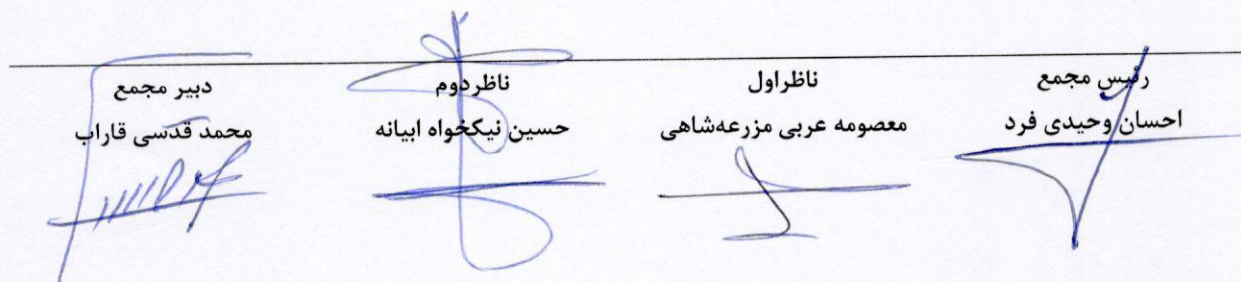 رئیس مجمع
احسان وحیدی فرد
ناظراول
معصومه عربی مزرعه‌شاهی
ناظردوم
حسین نیکخواه ابیانه
دبیر مجمع
محمد قدسی قاراب